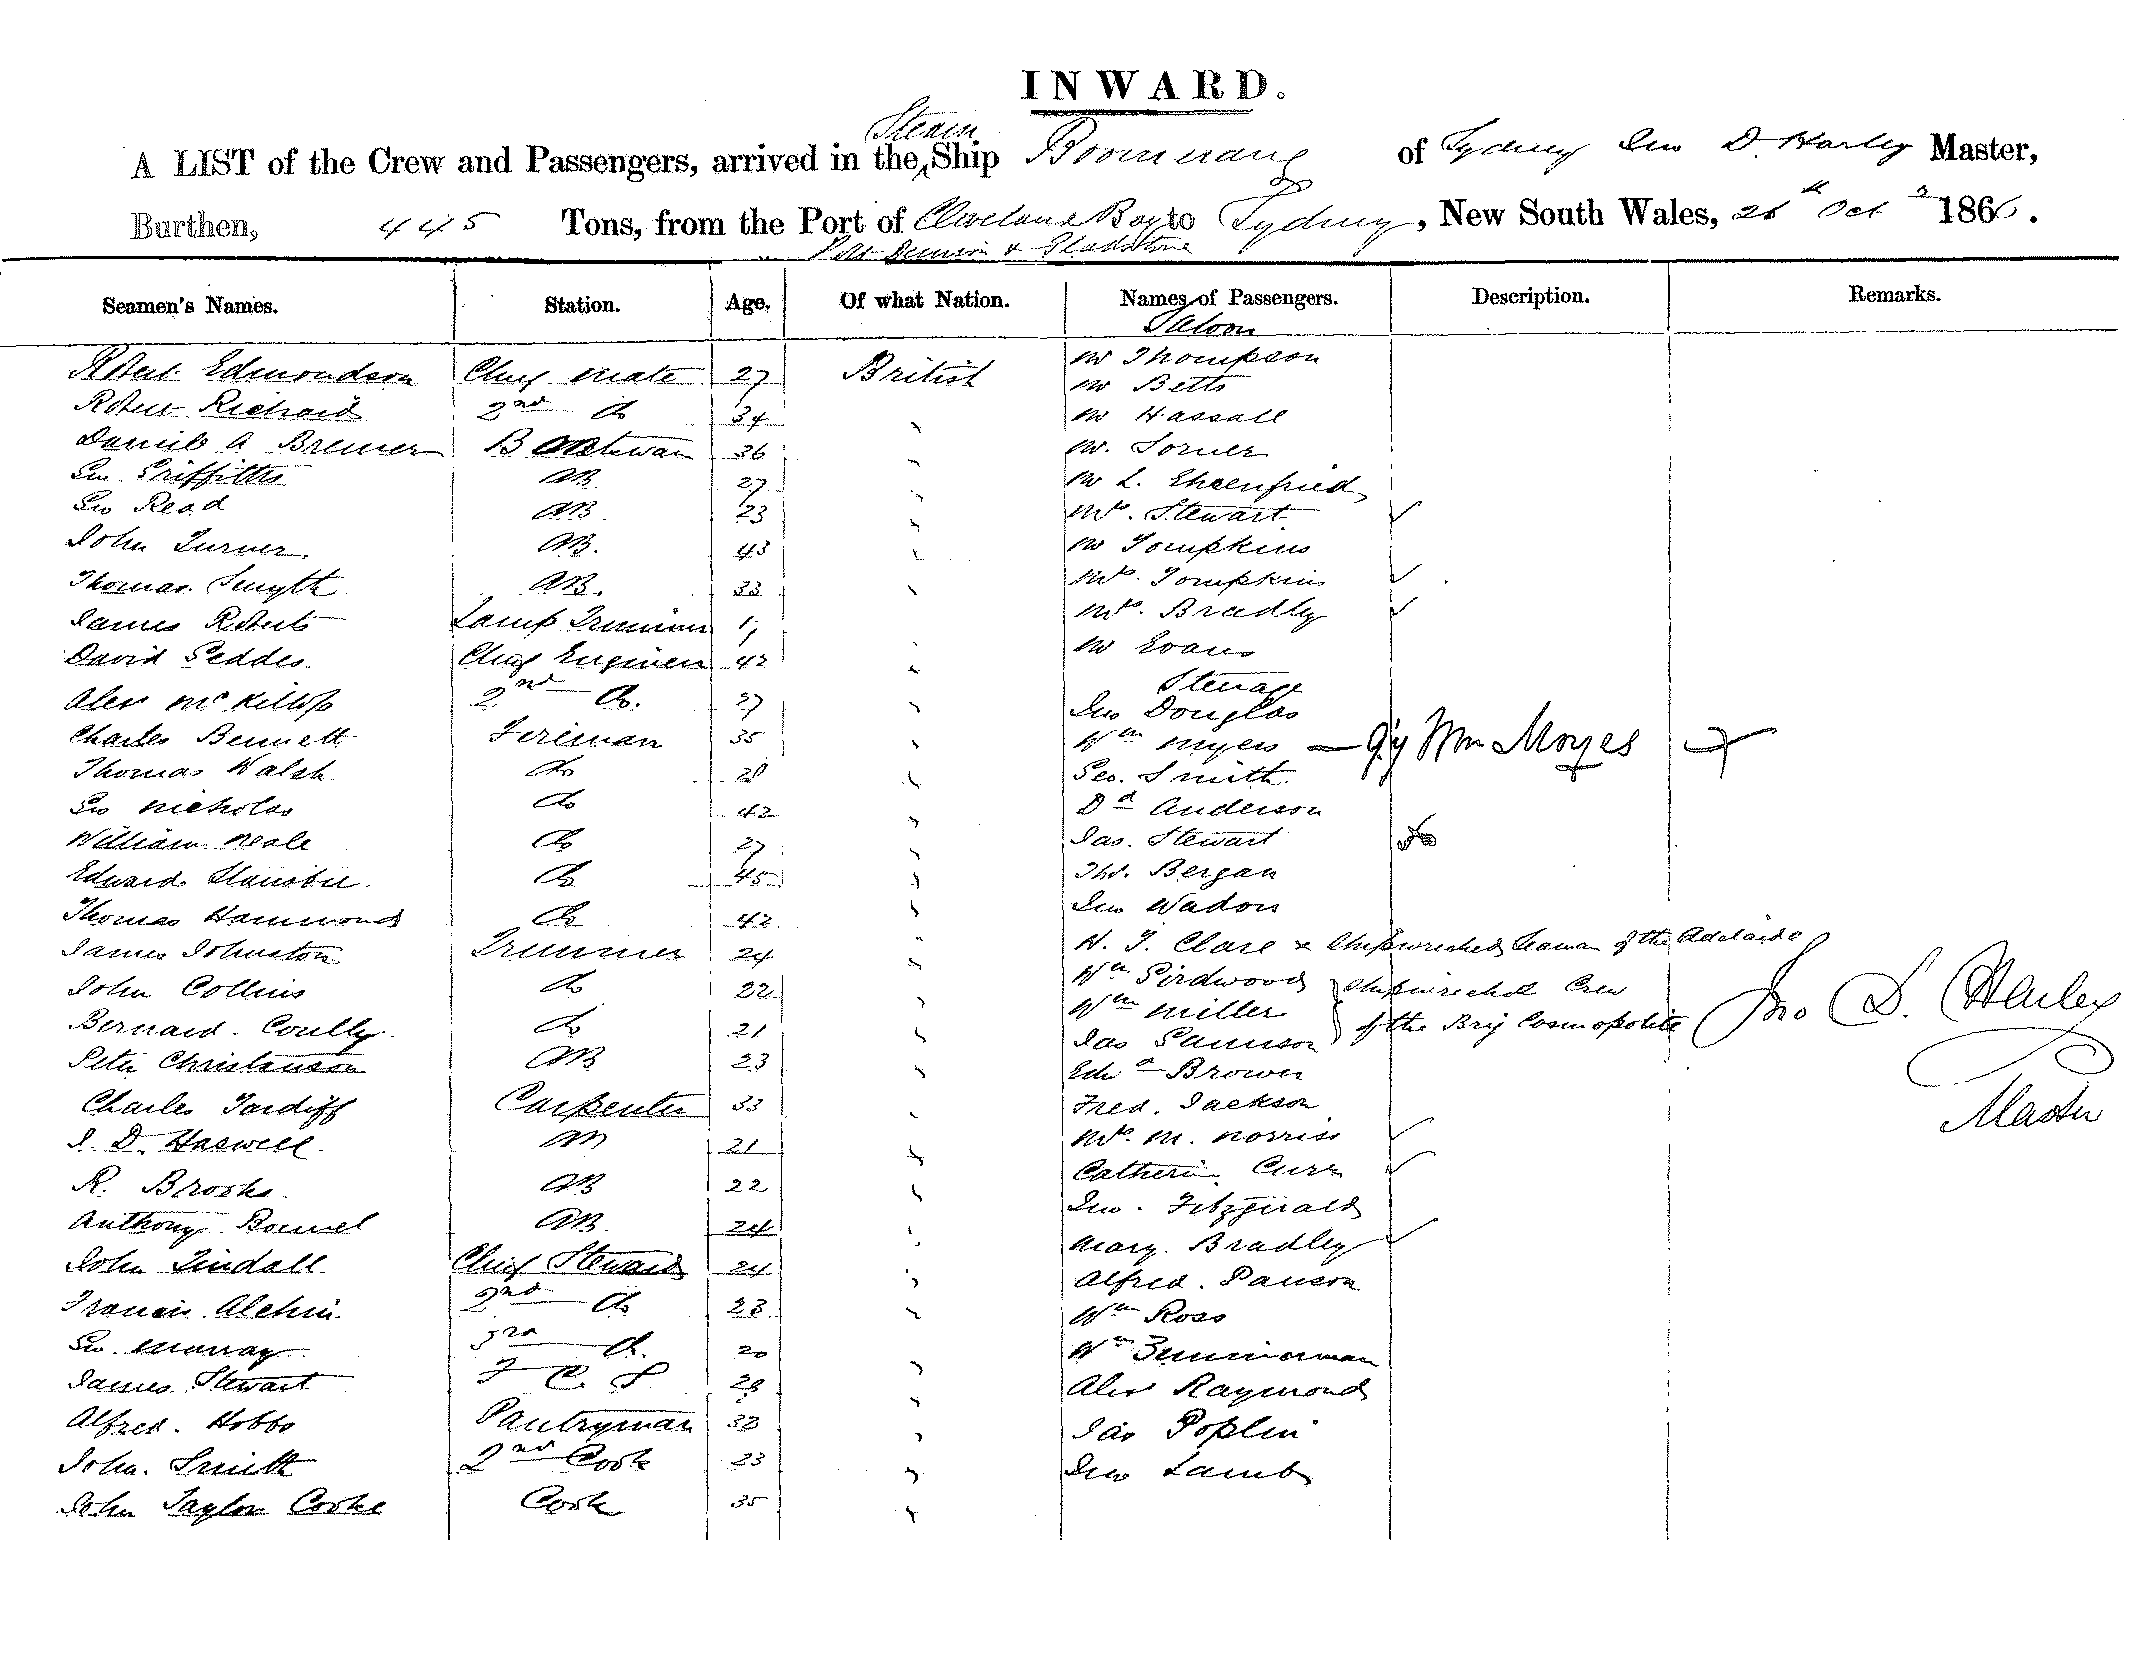 INWARD.
Steam
A LIST of the Crew and Passengers, arrived in the Ship Boomerang of Sydney Jno D. Harley Master,
Burthen, 445 Tons, from the Port of Cleveland Bay to Sydney, New South Wales, 26th Oct 1866.
Port Denison & Gladstone
Seamen's Names. Station. Age. Of what Nation. Names of Passengers. Description. Remarks.
Saloon
Robert Edmondson Chief mate 27 British Mr Thompson
Mr Betts
Robert Richard 2nd do 34 Mr Hassall
Daniel A Bremer Boatswain 36 Mr. Torner
Geo Griffiths AB 27 Mr L. Ehrenfried
Geo Read AB 23 Mrs. Stewart
John Turner AB. 43 Mr Tompkins
Thomas Smyth AB. 33 Mrs. Tompkins
James Roberts Lamp Trimmer 17 Mrs. Bradley
David Geddes Chief Engineer 42 Mr Evans
Steerage
Alex McKillop 2nd do. 27 Jno Douglas
Charles Bennett Fireman 35 Wm Myers — Wm Moyes
Thomas Walsh do Geo. Smith
Geo Nicholas do 42 Dd Anderson
William Neale do 27 Jas. Stewart
Edward do 45 Tho. Bergan
Thomas Hammond do 42 Jno Wadon
James Johnston Trimmer 24 H. J. Clare Shipwrecked Seaman of the Adelaide
John Collins do 22 Wm Girdwood Shipwrecked Crew
Wm Miller
Bernard. Coully do 21 Jas of the Brig Cosmopolite
Jno D. Harley
Master
Peter Christenson AB 23 Edwd Brower
Charles Tardiff Carpenter 33 Fred. Jackson
J. D. Haswell 21 Mrs. M. Norriss
R. Brooks. AB 22 Catherin Curr
Jno. Fitzgerald
Anthony Bonnel AB. 24 Mary. Bradley
John Tindall Chief Steward 24 Alfred. Pauson
Francis Alchin 2nd do 23 Wm Ross
Geo. Murray 3rd do. 20 Wm Zimmerman
James Stewart F C S 28 Alex Raymond
Alfred. Hobbs Pantryman 33 Jas Poplin
John. Smith 2nd Cook 23 Jno Lamb
John Taylor Cooke Cook 35